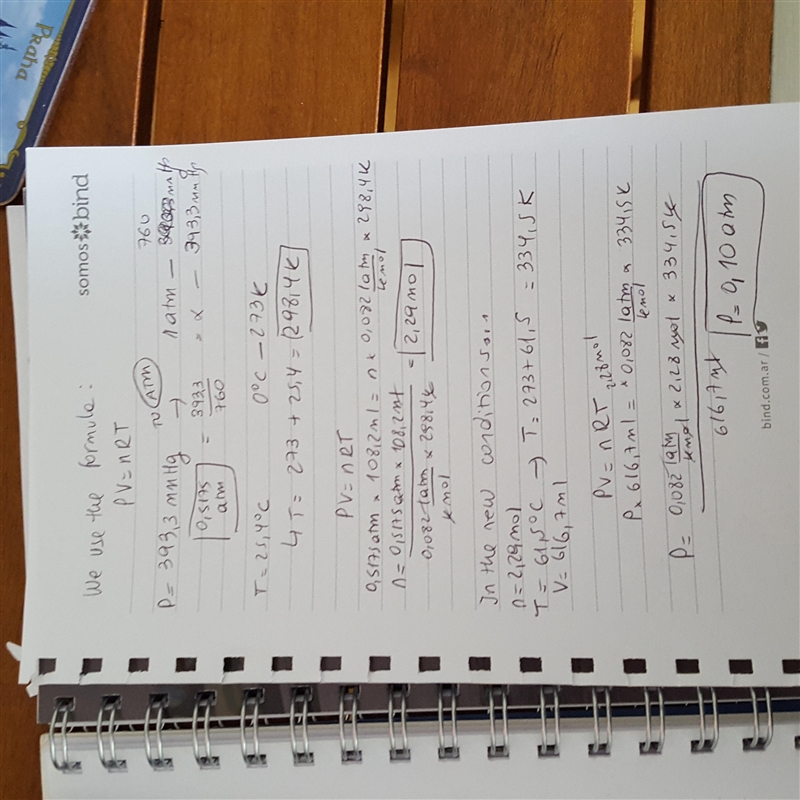 Praha
somos bind
We use the formule:
PV = nRT
P = 393,3 mmHg TO ATM → 1 atm — 760 mmHg
0,5175 atm = 393,3 / 760 = x — 393,3 mmHg
T = 25,4°C 0°C — 273K
↳ T = 273 + 25,4 = 298,4K
PV = nRT
0,5175 atm x 108,2 ml = n x 0,082 latm/kmol x 298,4K
n = 0,5175 atm x 108,2 ml / 0,082 latm/kmol x 298,4K = 2,29 mol
In the new conditions...
n = 2,29 mol
T = 61,5°C → T = 273 + 61,5 = 334,5K
V = 616,7 ml
PV = nRT
P x 616,7 ml = 2,28 mol x 0,082 latm/kmol x 334,5K
P = 0,082 latm/kmol x 2,28 mol x 334,5K / 616,7 ml
P = 0,10 atm
bind.com.ar /